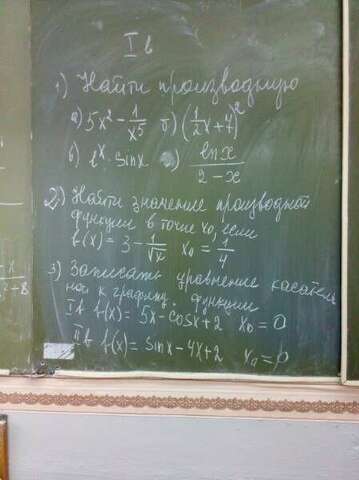 I в
1) Найти производную
а) 5x² - 1/x⁵ б) (1/2 x + 7)²
в) eˣ · sin x г) ln x / 2 - x
2) Найти значение производной
функции в точке x₀, если
f(x) = 3 - 1/√x x₀ = 1/4
3) Записать уравнение касатель
ной к графику функции
I в f(x) = 5x - cos x + 2 x₀ = 0
II в f(x) = sin x - 4x + 2 x₀ = 0